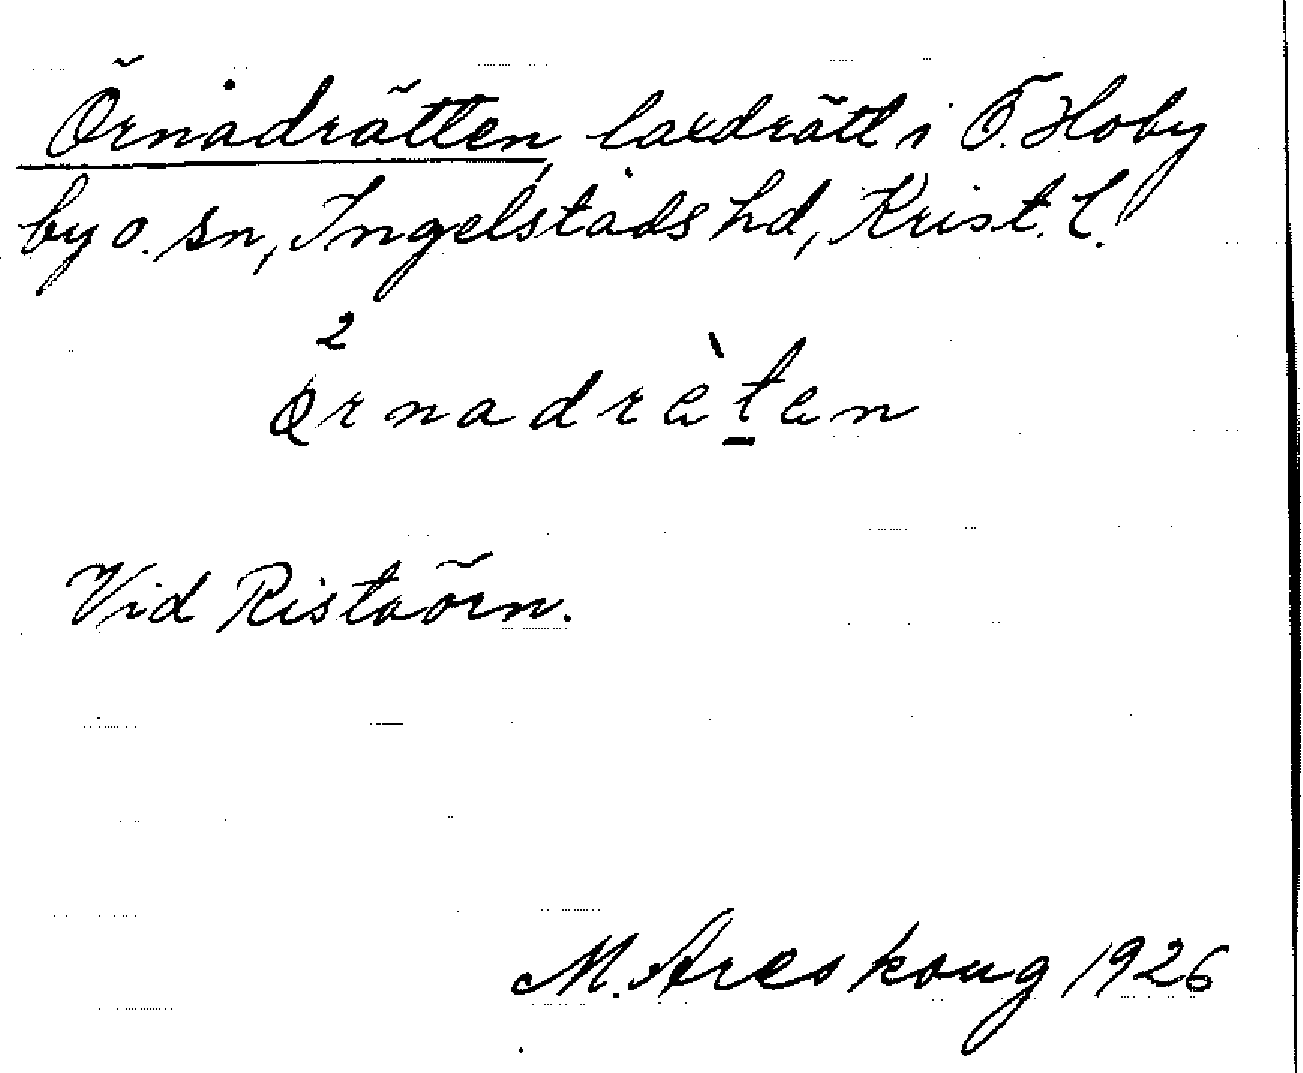 Örnadrätten, laxdrätt i Ö. Hoby
by o. sn, Ingelstads hd, Krist. l.
2
ørnadrèten
Vid Ristaörn.
M. Areskoug 1926